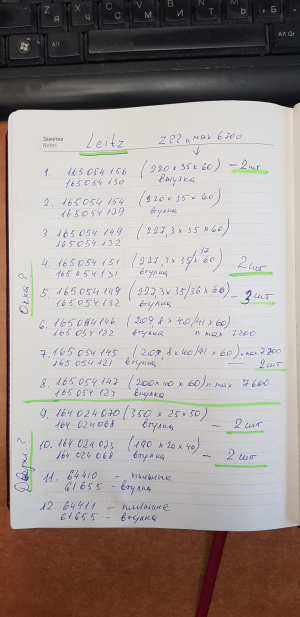 Заметки
Notes
Leitz Z22 n max 6700
1. 165 054 156 (220 x 35 x 60) – 2 шт
165 054 130 втулка
2. 165 054 154 (220 x 35 x 60)
165 054 129 втулка
3. 165 054 149 (227,3 x 35 x 60)
165 054 132
4. 165 054 151 (227,3 x 35/37 x 60) 2 шт
165 054 131 втулка
Окна ?
5. 165 054 149 (227,3 x 35/36 x 60) – 3 шт
165 054 132 втулка
6. 165 054 146 (209,8 x 40/41 x 60)
165 054 122 втулка n max 7200
7. 165 054 145 (209,8 x 40/41 x 60) n max 7200
165 054 121 втулка 2 шт
8. 165 054 147 (200 x 40 x 60) n max 7600
165 054 123 втулка
9. 164 024 070 (350 x 25 x 50)
164 024 068 втулка – 2 шт
Двери ?
10. 164 024 073 (190 x 20 x 40)
164 024 068 втулка – 2 шт
11. 64410 – пильные
61655 – втулка
12. 64411 – пильные
61655 – втулка